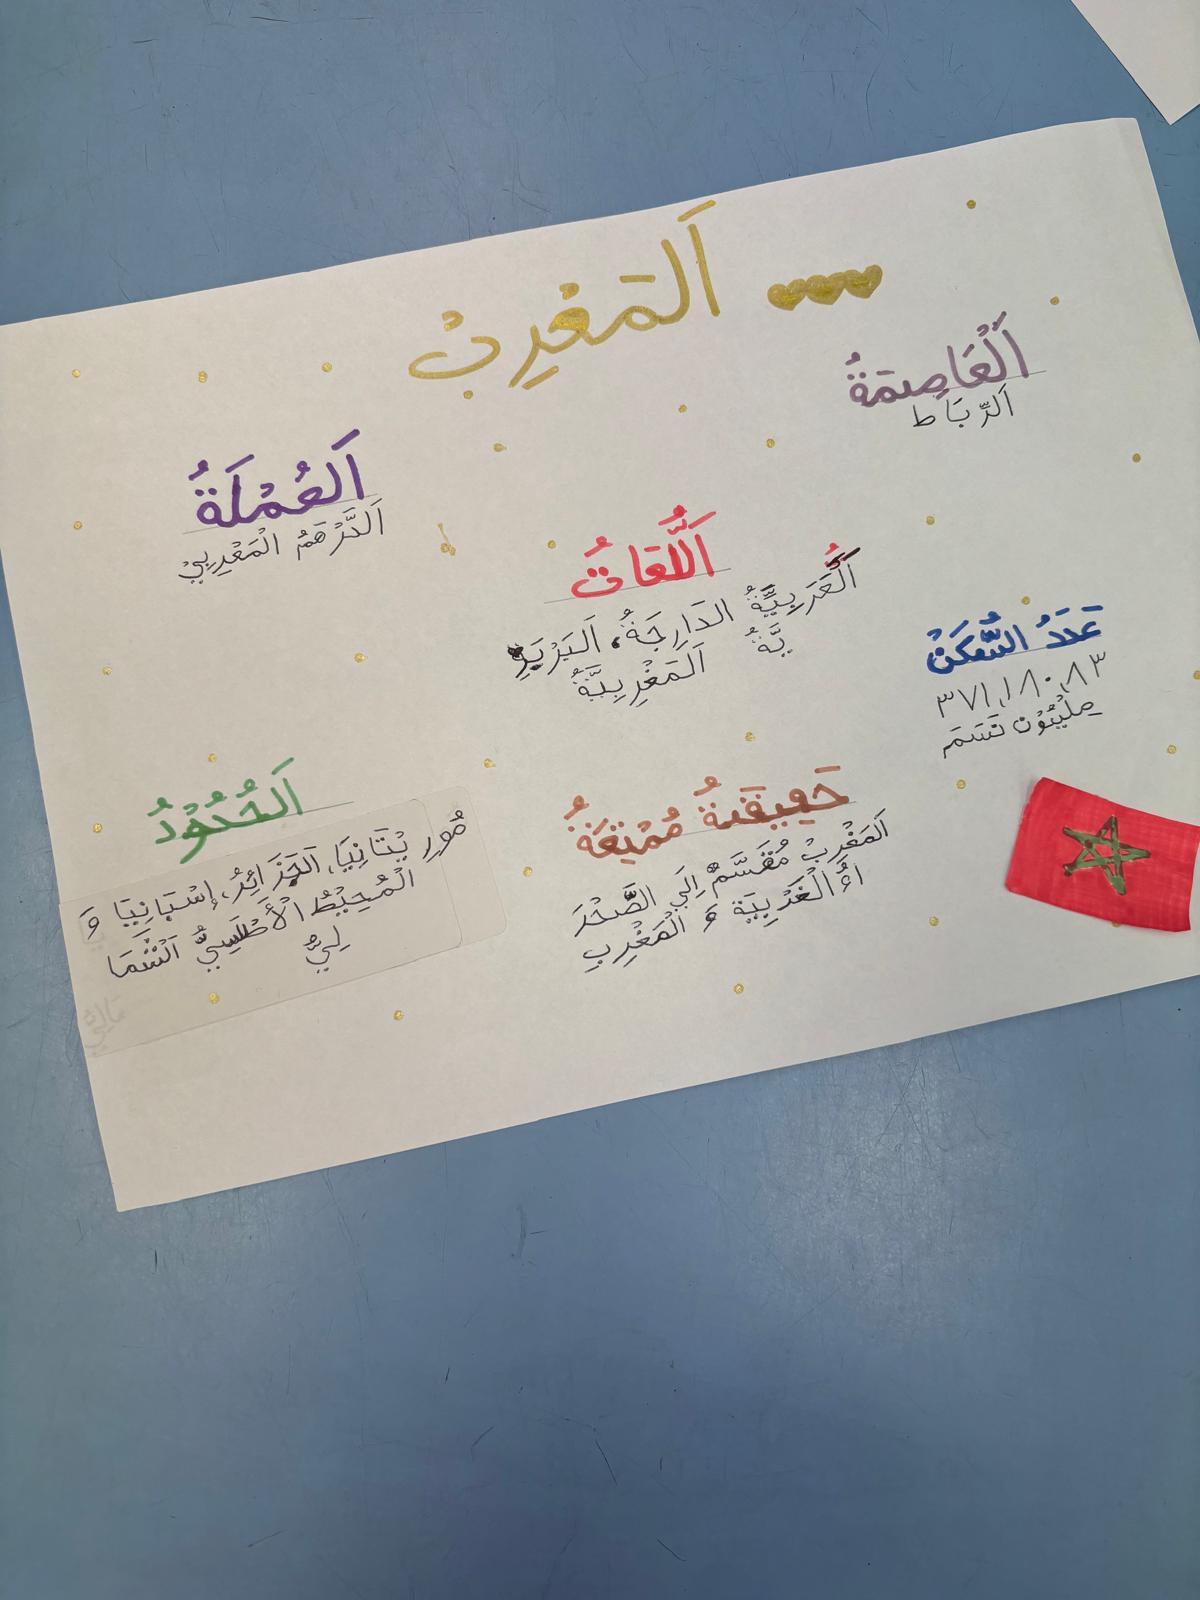 اَلمَغْرِبْ
اَلْعَاصِمَةُ
اَلرِّبَاط
اَلعُمْلَةُ
اَلدَّرْهَمُ الْمَغْرِبِيْ
اَللُّغَاتُ
اَلْعَرَبِيَّةُ الدَارِجَةُ، اَلبَرْبَرِ
يَّةُ اَلمَغْرِبِيَّةُ
عَدَدُ السُّكَنْ
٣٧١,١٨٠,٨٣
مِلْيُوْن نَسَمَ
اَلْحُدُوْدُ
مُورِ يْتَانِيَا، اَلجَزَائِرُ، إِسْبَانِيَا وَ
الْمُحِيْطُ الْأَطْلَسِيُّ اَلشَّمَا
لِيُّ
حَقِيْقَةٌ مُمْتِعَةٌ
اَلمَغْرِبْ مُقَسَّمْ إِلَي الصَّحْرَ
اءُ الْغَرْبِيَة وَ الْمَغْرِبِ